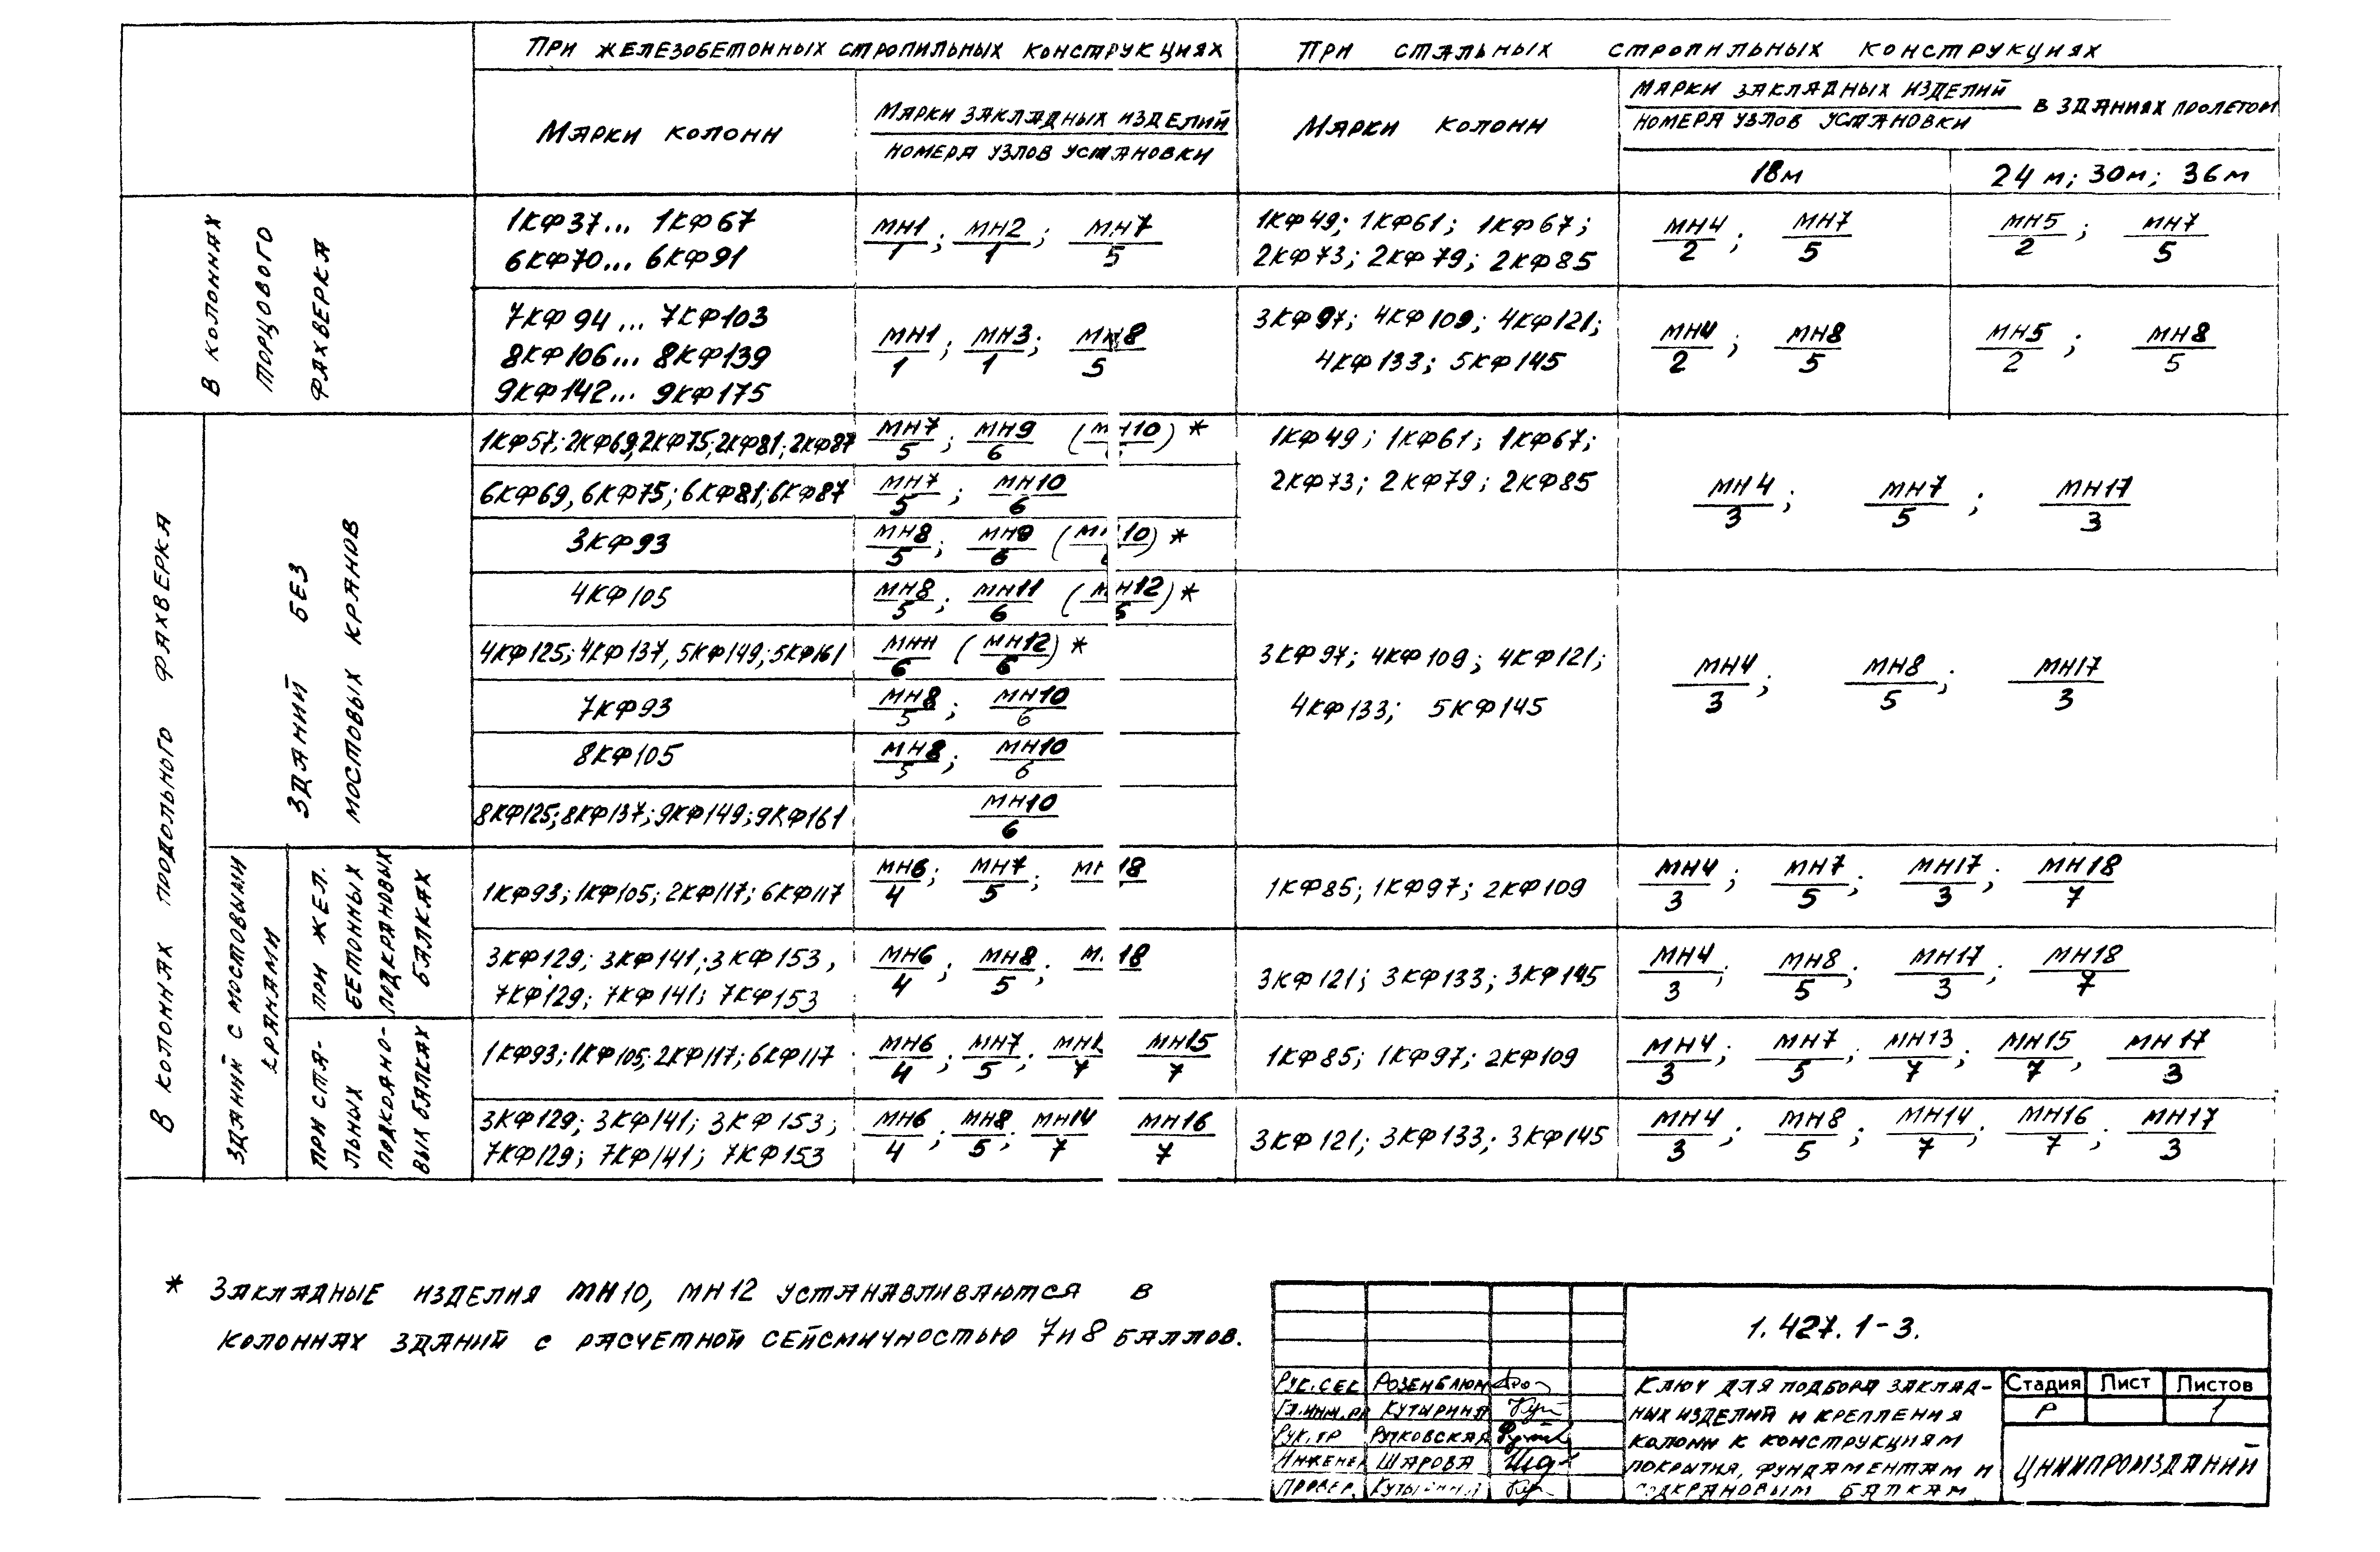 При железобетонных стропильных конструкциях
При стальных стропильных конструкциях
Марки колонн
Марки закладных изделий
номера узлов установки
Марки колонн
Марки закладных изделий
номера узлов установки
в зданиях пролетом
18м
24 м; 30м; 36м
В колоннах
торцового
фахверка
1КФ37... 1КФ67
6КФ70... 6КФ91
МН1/1; МН2/1; МН7/5
1КФ49; 1КФ61; 1КФ67;
2КФ73; 2КФ79; 2КФ85
МН4/2; МН7/5
МН5/2; МН7/5
7КФ94... 7КФ103
8КФ106... 8КФ139
9КФ142... 9КФ175
МН1/1; МН3/1; МН8/5
3КФ97; 4КФ109; 4КФ121;
4КФ133; 5КФ145
МН4/2; МН8/5
МН5/2; МН8/5
В колоннах продольного фахверка
зданий без
мостовых кранов
1КФ57; 2КФ69; 2КФ75; 2КФ81; 2КФ87
МН7/5; МН9/6 (МН10)*
6КФ69, 6КФ75; 6КФ81; 6КФ87
МН7/5; МН10/6
3КФ93
МН8/5; МН9/6 (МН10)*
4КФ105
МН8/5; МН11/6 (МН12/5)*
4КФ125; 4КФ137, 5КФ149; 5КФ161
МН11/6 (МН12/6)*
7КФ93
МН8/5; МН10/6
8КФ105
МН8/5; МН10/6
8КФ125; 8КФ137; 9КФ149; 9КФ161
МН10/6
1КФ49; 1КФ61; 1КФ67;
2КФ73; 2КФ79; 2КФ85
МН4/3; МН7/5; МН17/3
3КФ97; 4КФ109; 4КФ121;
4КФ133; 5КФ145
МН4/3; МН8/5; МН17/3
зданий с мостовыми
кранами
при жел.
бетонных
подкрановых
балках
1КФ93; 1КФ105; 2КФ117; 6КФ117
МН6/4; МН7/5; МН18
1КФ85; 1КФ97; 2КФ109
МН4/3; МН7/5; МН17/3; МН18/7
3КФ129; 3КФ141; 3КФ153,
7КФ129; 7КФ141; 7КФ153
МН6/4; МН8/5; М 18
3КФ121; 3КФ133; 3КФ145
МН4/3; МН8/5; МН17/3; МН18/7
при ста-
льных
подкрано-
вых балках
1КФ93; 1КФ105; 2КФ117; 6КФ117
МН6/4; МН7/5; МН1 /7 МН15/7
1КФ85; 1КФ97; 2КФ109
МН4/3; МН7/5; МН13/7; МН15/7, МН17/3
3КФ129; 3КФ141; 3КФ153;
7КФ129; 7КФ141; 7КФ153
МН6/4; МН8/5; МН14/7 МН16/7
3КФ121; 3КФ133; 3КФ145
МН4/3; МН8/5; МН14/7; МН16/7; МН17/3
* Закладные изделия МН10, МН12 устанавливаются в
колоннах зданий с расчетной сейсмичностью 7 и 8 баллов.
1.427.1-3.
Рук.сек Розенблюм
Гл.инж.пр Кутырина
Рук.гр Рутковская
Инженер Шарова
Провер. Кутырина
Ключ для подбора заклад-
ных изделий и крепления
колонн к конструкциям
покрытия, фундаментам и
подкрановым балкам
Стадия Лист Листов
Р 1
ЦНИИпромзданий